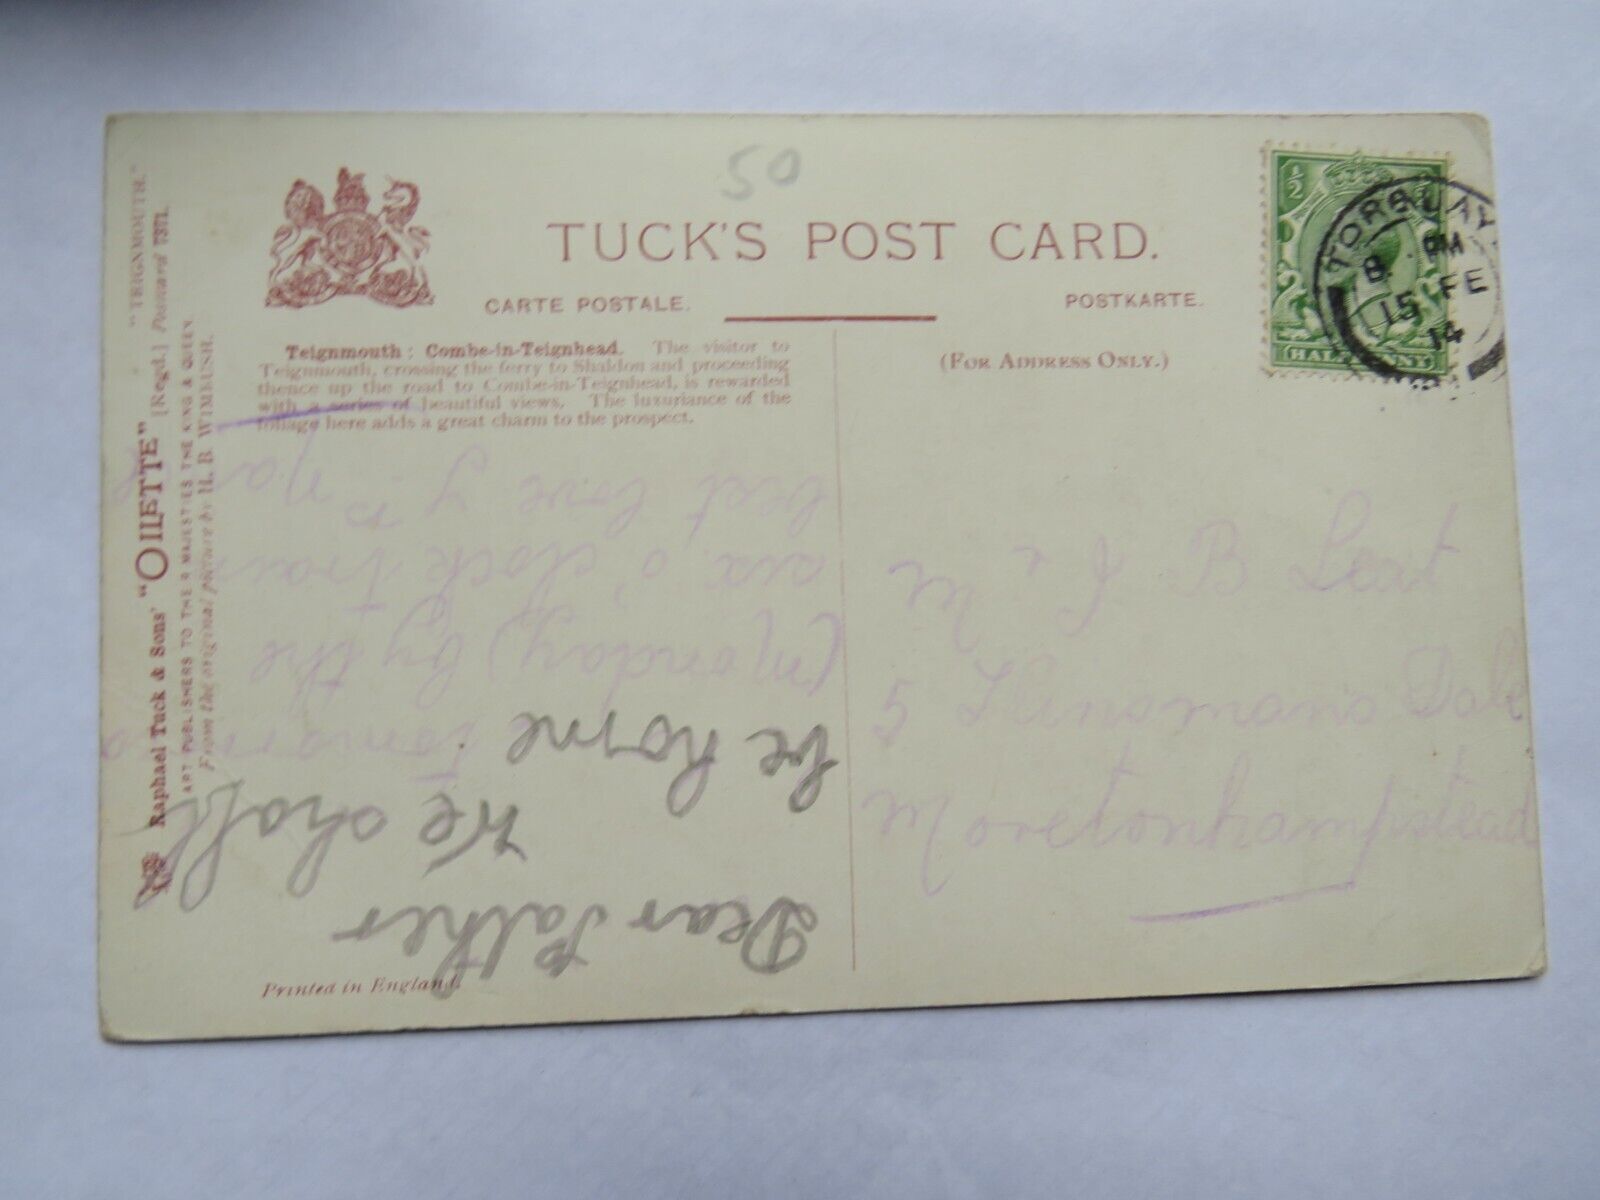 50
TUCK'S POST CARD.
CARTE POSTALE.
POSTKARTE.
(FOR ADDRESS ONLY.)
1/2
HALFPENNY
TORQUAY
8. PM
15 FE
14
Teignmouth: Combe-in-Teignhead. The visitor to
Teignmouth, crossing the ferry to Shaldon and proceeding
thence up the road to Combe-in-Teignhead, is rewarded
with a series of beautiful views. The luxuriance of the
foliage here adds a great charm to the prospect.
"TEIGNMOUTH."
Raphael Tuck & Sons' "OILETTE" [Regd.] Postcard 7371.
ART PUBLISHERS TO THEIR MAJESTIES THE KING & QUEEN.
From the original picture by H. B. WIMBUSH.
Printed in England.
Dear Father
We shall
be home
(Monday) by the
six o'clock train
best love
J B
5
Moretonhampstead